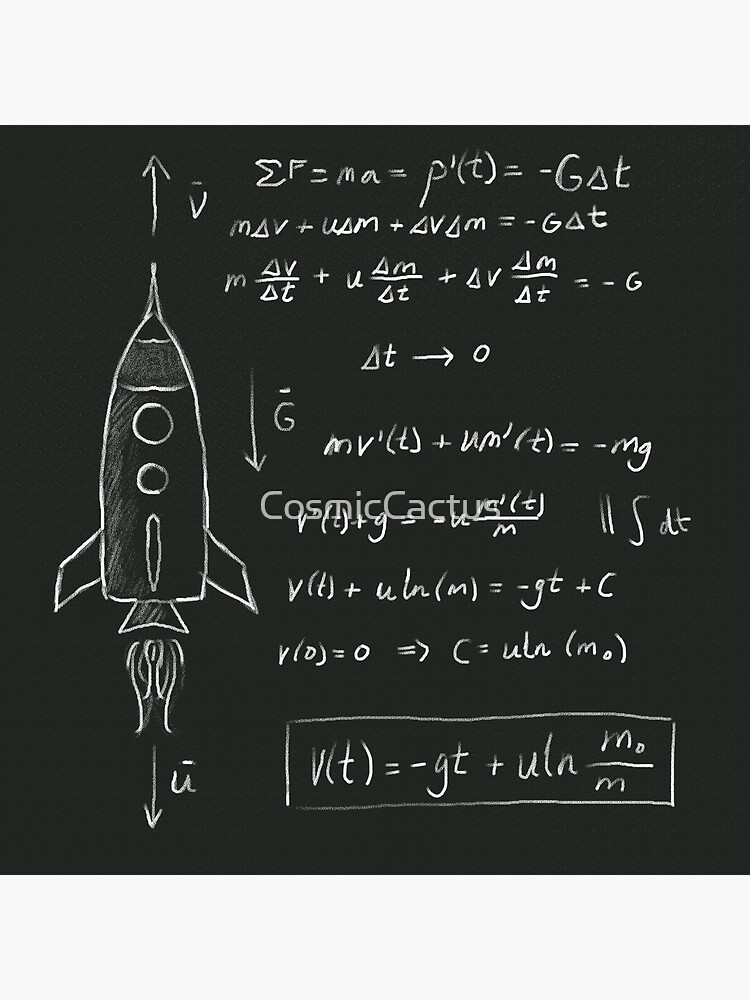 ΣF = ma = p'(t) = -GΔt
v̄
mΔv + uΔm + ΔvΔm = -GΔt
m Δv/Δt + u Δm/Δt + Δv Δm/Δt = -G
Δt → 0
Ḡ
mv'(t) + um'(t) = -mg
CosmicCactus
v'(t) + g = -u m'(t)/m || ∫ dt
v(t) + u ln(m) = -gt + C
v(0) = 0 => C = u ln (m₀)
v(t) = -gt + u ln m₀/m
ū